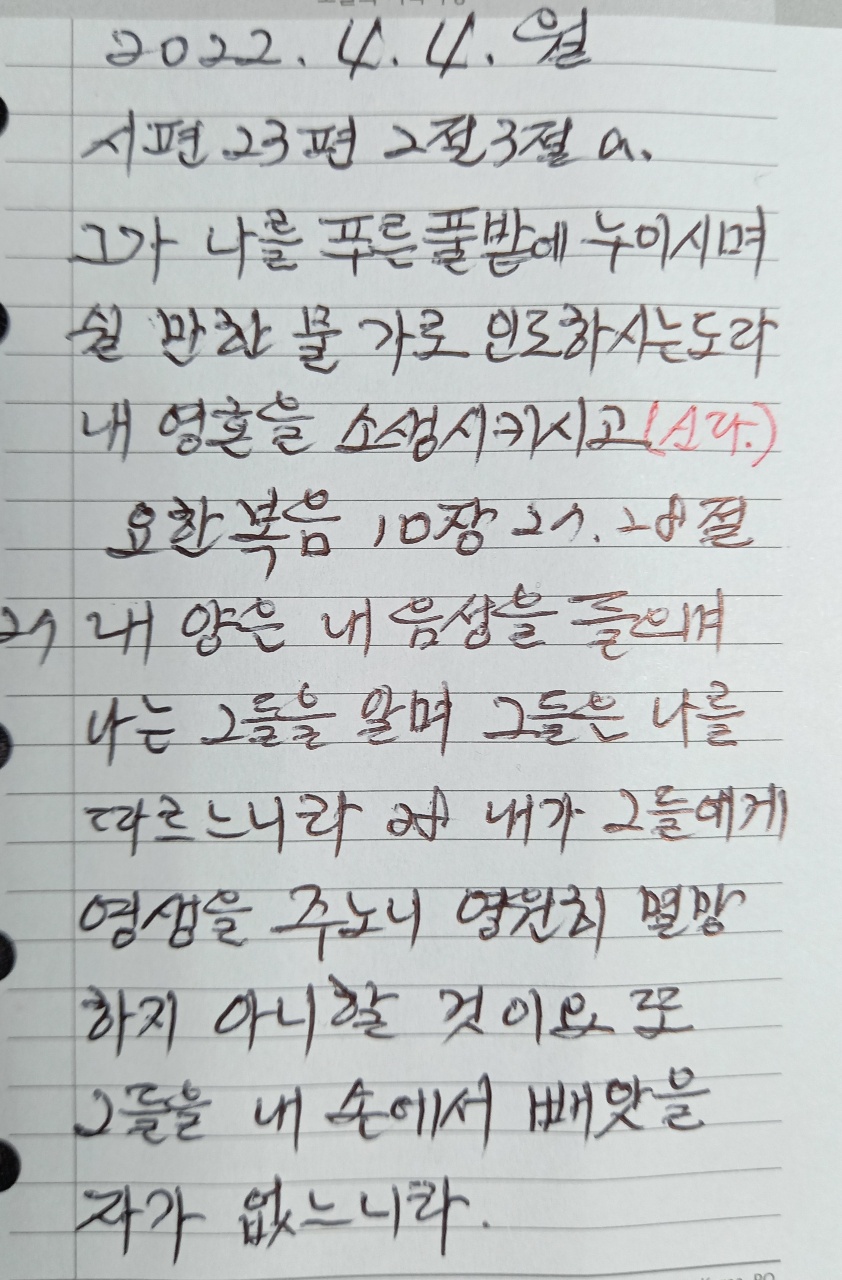 2022. 4. 4. 월
시편 23편 2절3절 a.
그가 나를 푸른풀밭에 누이시며
쉴 만한 물 가로 인도하시는도다
내 영혼을 소생시키시고(A라.)
요한복음 10장 27. 28절
27 내 양은 내 음성을 들으며
나는 그들을 알며 그들은 나를
따르느니라 28 내가 그들에게
영생을 주노니 영원히 멸망
하지 아니할 것이요 또
그들을 내 손에서 빼앗을
자가 없느니라.